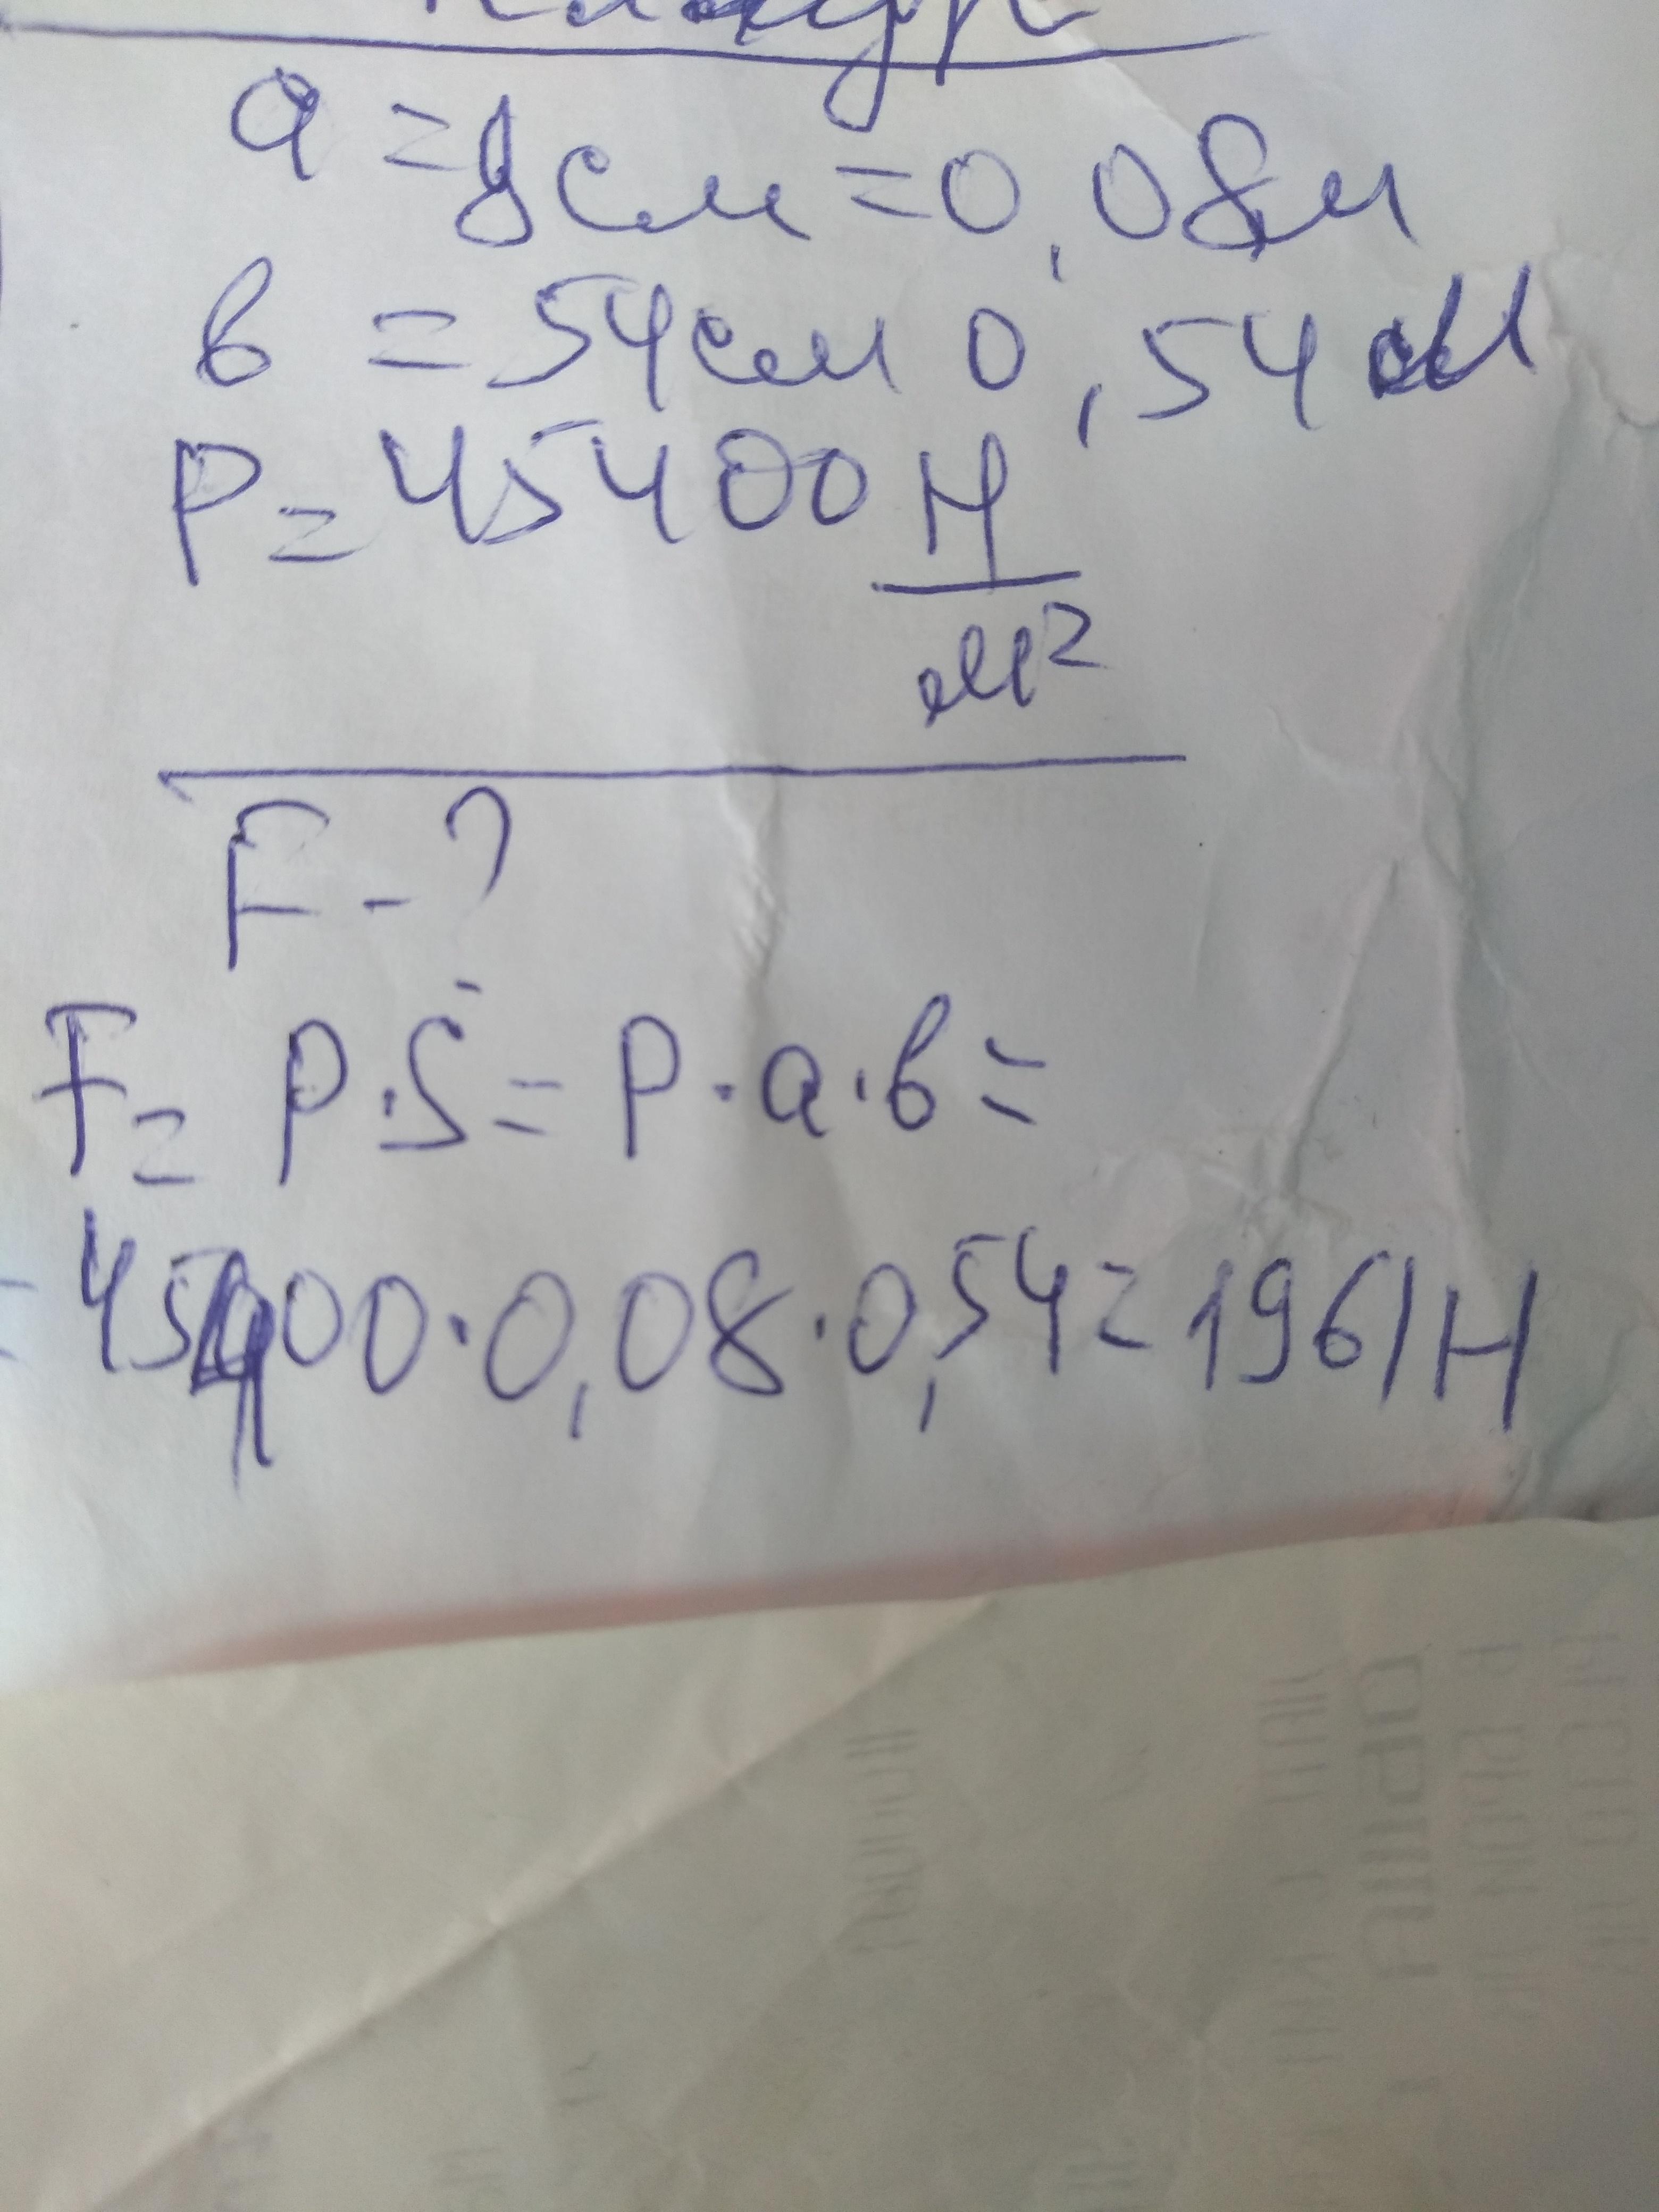 a = 8см = 0,08м
в = 54см 0,54м
P = 45400 Н
м²
F - ?
F = p·S = p·a·в =
= 45400·0,08·0,54 = 1961Н